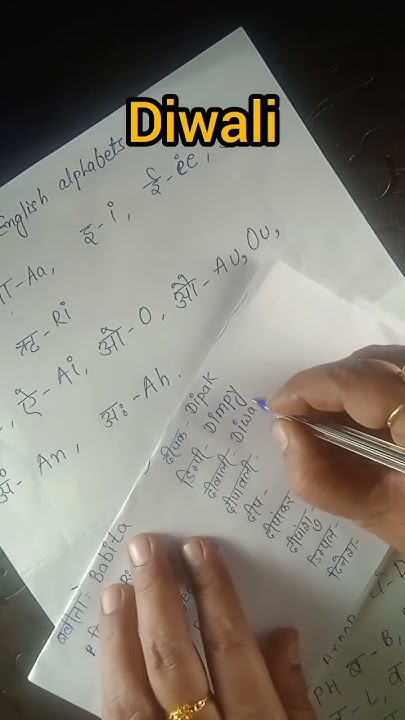 Diwali
English alphabets
इ-i, ई-ee,
-Aa,
ऋ-Ri
ऐ-Ai, ओ-O, औ-Au, Ou,
An, अः-Ah.
दीपक- Dipak
डिम्पी- Dimpy
दीवाली- Diwa
दीपावली-
दीप-
दीपांकर-
दीपांशु-
डिम्पल-
दिनेश-
बबीता- Babita
PH ब-B,
-L,